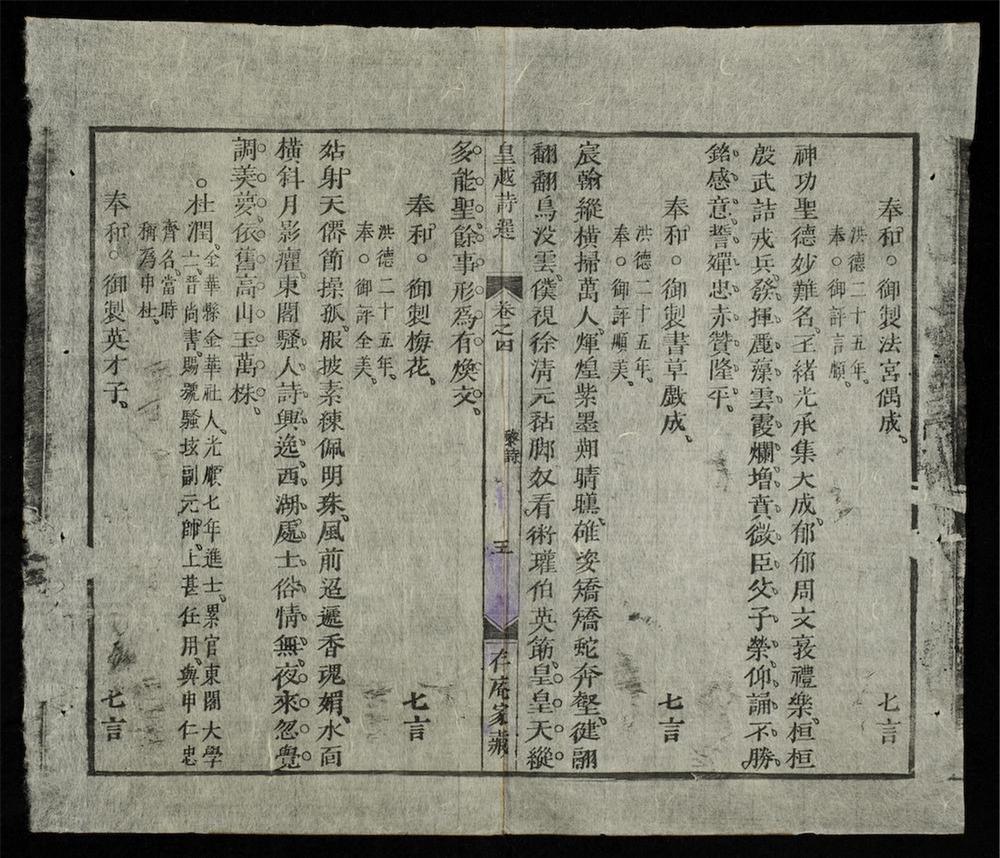 奉和。御製法宮偶成、 七言
洪德二十五年、
奉。御評言順、
神功聖德妙難名、王緒光承集大成、郁郁周文敦禮樂、桓桓
殷武詰戎兵、發揮麗藻雲霞爛、增賁微臣父子榮、仰誦不勝
銘感意、誓殫忠赤贊隆平、
奉和。御製書草戲成、 七言
洪德二十五年、
奉。御評順美、
宸翰縱橫掃萬人、煇煌紫墨郑晴曛、碓姿矯矯蛇奔壑、健翮
翩翩鳥没雲、僕視徐清元黏脚、奴看衛瓘伯英筋、皇皇天縱
皇越詩選 卷之四 黎詩 五 存庵家藏
多能聖、餘事形爲有煥文、
奉和。御製梅花、 七言
洪德二十五年、
奉。御評全美、
姑射天僊節操孤、服披素練佩明珠、風前迢遞香魂媚、水面
橫斜月影癯、東閣騷人詩興逸、西湖處士俗情無、夜來忽覺
調美夢、依舊高山玉萬株、
。杜潤、金華縣金華社人、光順七年進士、累官東閣大學
士、晋尚書、賜號騷坛副元帥、上甚任用、與申仁忠
齊名、當時
稱為申杜、
奉和。御製英才子、 七言